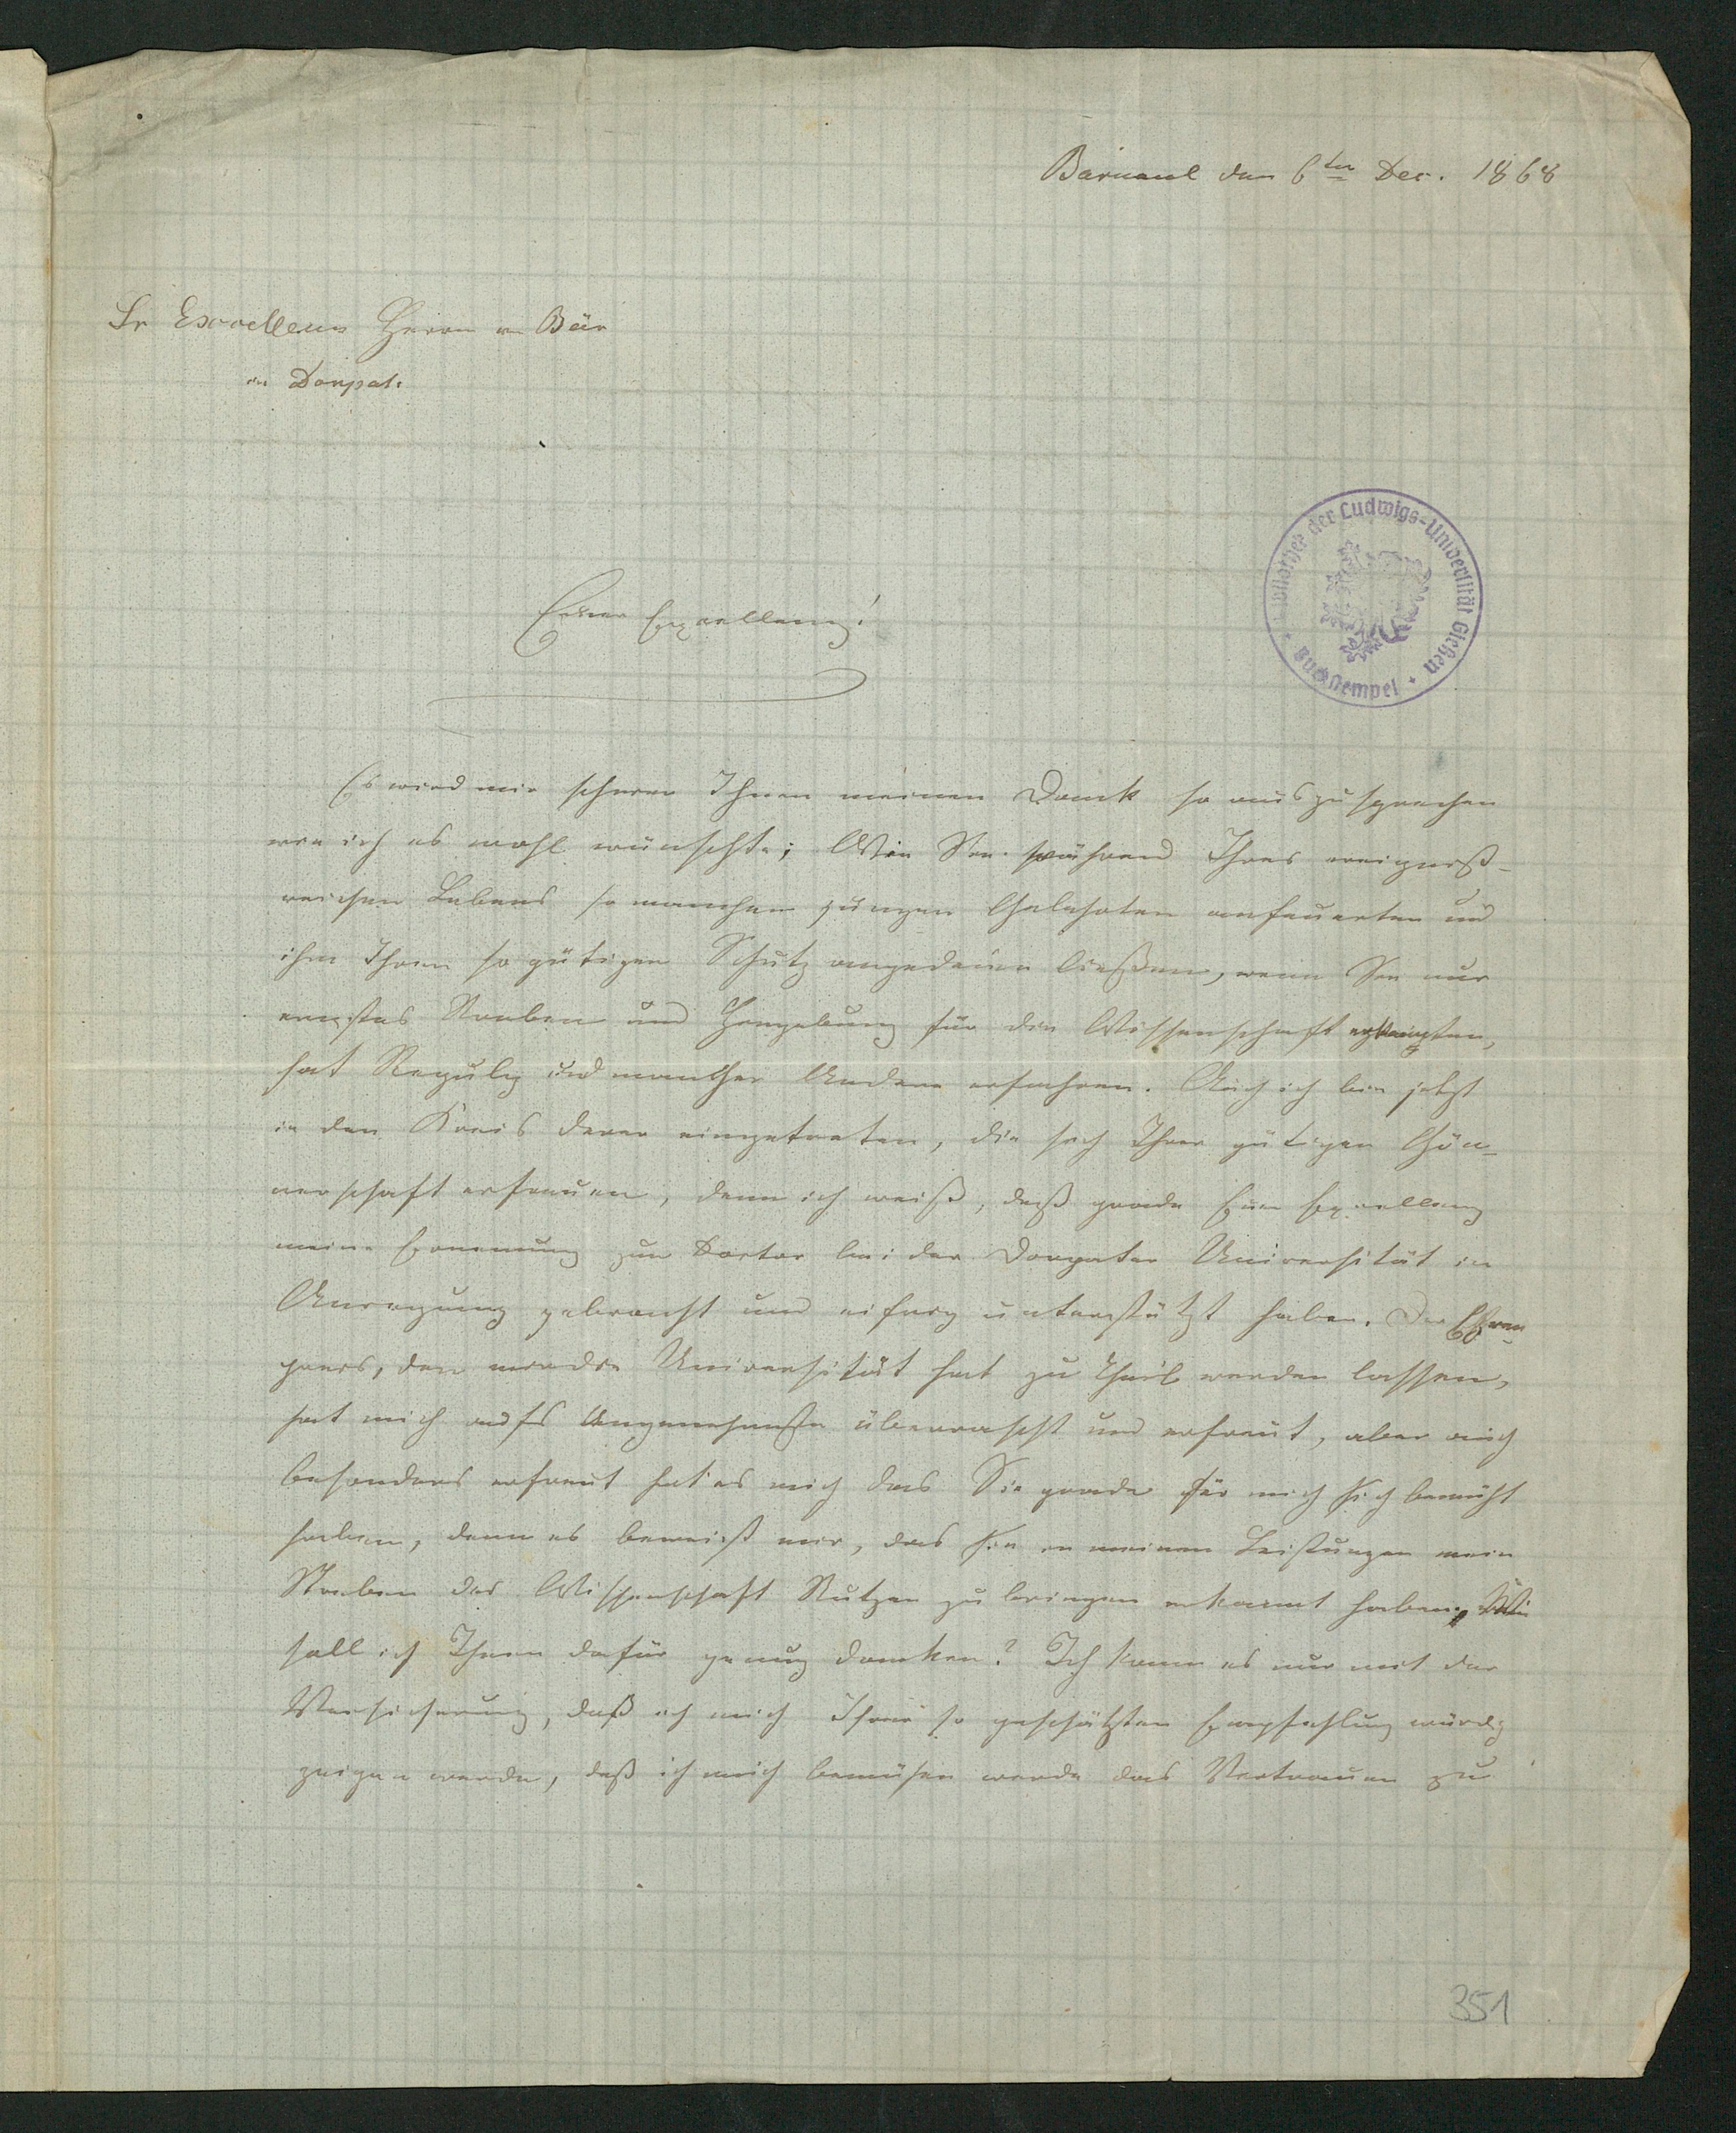 Barnaul den 6ten Dec. 1868
Sr Excellenz Herrn v. Bär
in Dorpat.
Bibliothek der Ludwigs-Universität Gießen
Buchstempel
Euer Excellenz!
Es wird mir schwer Ihnen meinen Dank so auszusprechen
wie ich es wohl wünschte; Wie Sie während Ihres ereigniß-
reichen Lebens so manchen jungen Gelehrten anfeuerten und
ihm Ihren so gütigen Schutz angedeien ließen, wenn Sie nur
ernstes Streben und Hingebung für die Wissenschaft
hat Reguly und mancher Andere erfahren. Auch ich bin jetzt
in den Kreis derer eingetreten, die sich Ihrer gütigen Gön-
nerschaft erfreuen, denn ich weiß, daß grade Euer Excellenz
meine Ernennung zum Doctor bei der Dorpater Universität in
Anregung gebracht und eifrig unterstützt haben. Der
den mir die Universität hat zu Theil werden lassen,
hat mich aufs Angenehmste überrascht und erfreut, aber auch
besonders erfreut hat es mich das Sie grade für mich sich bemüht
haben, denn es beweist mir, das Sie in meinen Leistungen mein
Streben der Wissenschaft Nutzen zu bringen erkannt haben. Wie
soll ich Ihnen dafür genug danken? Ich kann es nur mit der
Versicherung, daß ich mich Ihrer so geschätzten Empfehlung würdig
zeigen werde, daß ich mich bemühen werde das Vertrauen zu
351